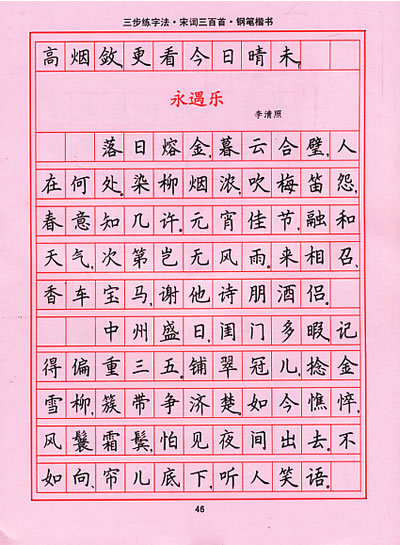 三步练字法·宋词三百首·钢笔楷书
高烟敛，更看今日晴未。
永遇乐
李清照
落日熔金，暮云合璧，人
在何处。染柳烟浓，吹梅笛怨，
春意知几许。元宵佳节，融和
天气，次第岂无风雨。来相召、
香车宝马，谢他诗朋酒侣。
中州盛日，闺门多暇，记
得偏重三五。铺翠冠儿，捻金
雪柳，簇带争济楚。如今憔悴，
风鬟霜鬓，怕见夜间出去。不
如向、帘儿底下，听人笑语。
46